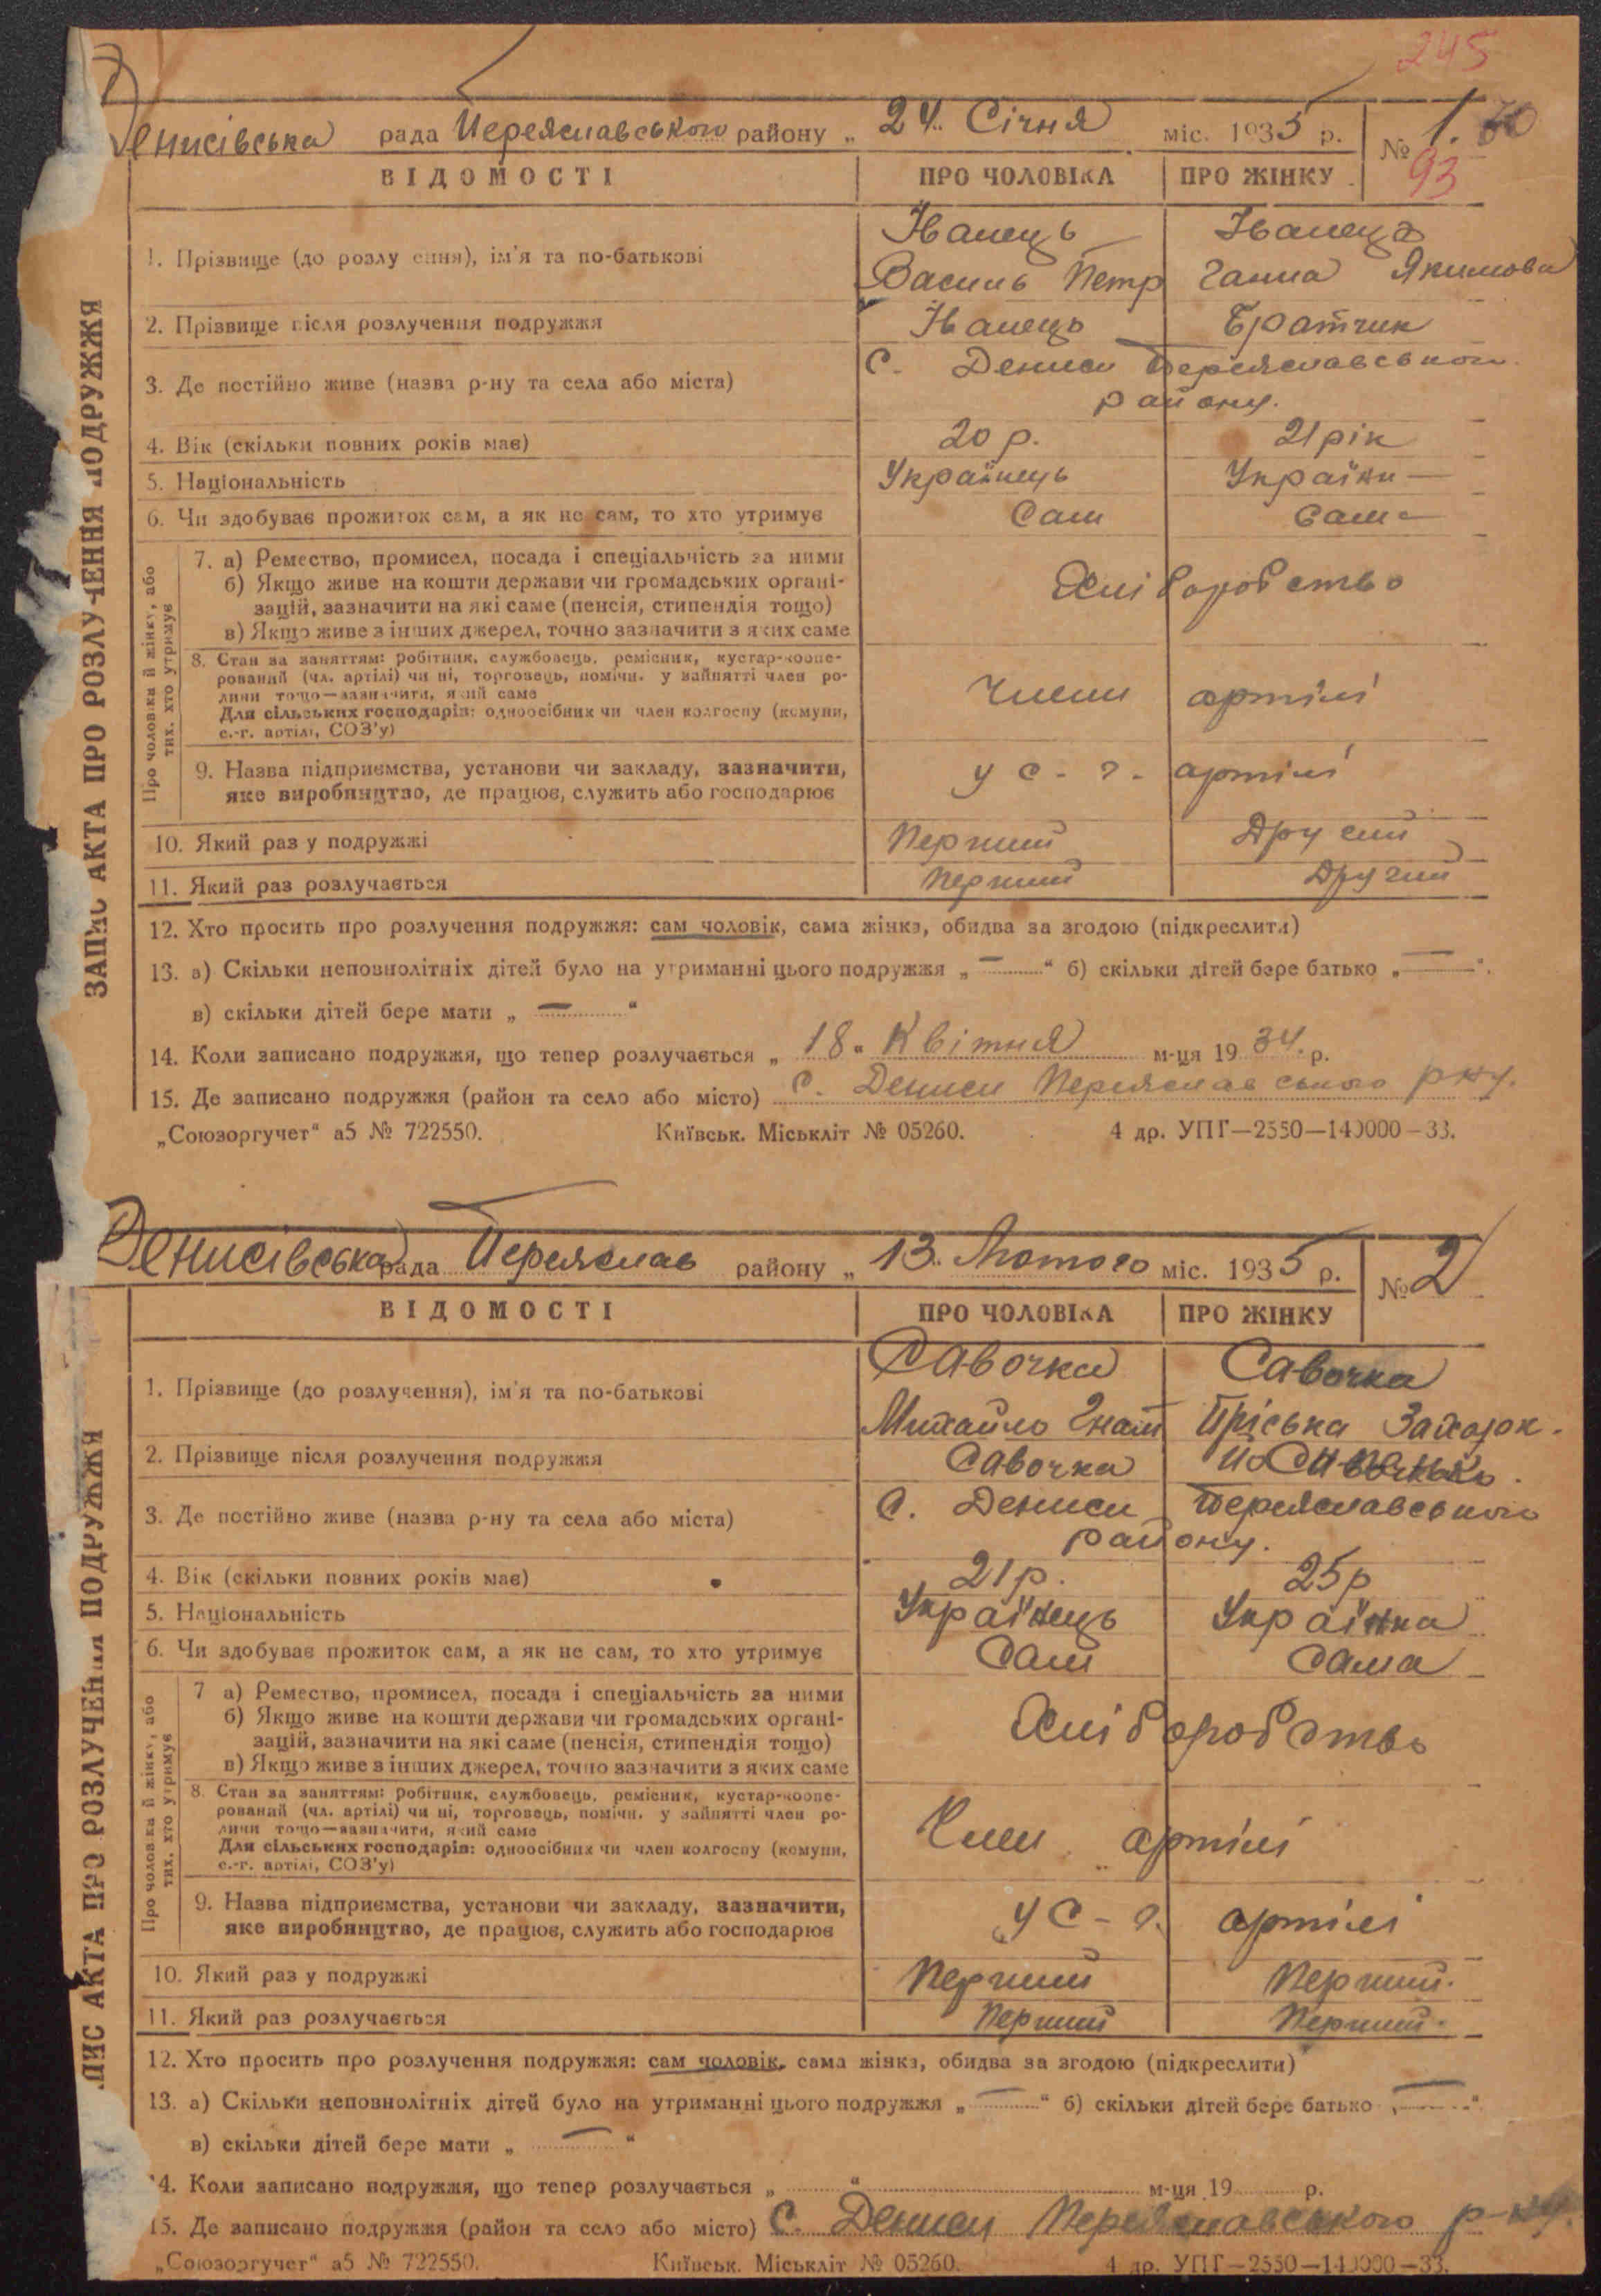 245
Денисівська рада Переяславського району „ 24 „ Січня міс. 1935 р. № 1. 60
93
ВІДОМОСТІ ПРО ЧОЛОВІКА ПРО ЖІНКУ
Іванець Іванець
1. Прізвище (до розлу ення), ім'я та по-батькові
Василь Петр Ганна Якимова
2. Прізвище після розлучення подружжя Іванець Братчик
3. Де постійно живе (назва р-ну та села або міста) С. Дениси Переяславського
району.
4. Вік (скільки повних років має) 20 р. 21 рік
5. Національність Українець Україн—
6. Чи здобуває прожиток сам, а як не сам, то хто утримує Сам Сама
Про чоловіка й жінку, або
тих, хто утримує
7. а) Ремество, промисел, посада і спеціальність за ними
б) Якщо живе на кошти держави чи громадських органі-
зацій, зазначити на які саме (пенсія, стипендія тощо) Хліборобство
в) Якщо живе з інших джерел, точно зазначити з яких саме
8. Стан за заняттям: робітник, службовець, ремісник, кустар-коопе-
рований (чл. артілі) чи ні, торговець, помічн. у занятті член ро-
дини тощо—зазначити, який саме Члени артілі
Для сільських господарів: одноосібник чи член колгоспу (комуни,
с.-г. артілі, СОЗ'у)
9. Назва підприємства, установи чи закладу, зазначити, у с-г. артілі
яке виробництво, де працює, служить або господарює
10. Який раз у подружжі Перший Другий
11. Який раз розлучається Перший Другий
12. Хто просить про розлучення подружжя: сам чоловік, сама жінка, обидва за згодою (підкреслити)
13. а) Скільки неповнолітніх дітей було на утриманні цього подружжя „ — “ б) скільки дітей бере батько „ — “.
в) скільки дітей бере мати „ — “
14. Коли записано подружжя, що тепер розлучається „ 18 „ Квітня м-ця 1934. р.
15. Де записано подружжя (район та село або місто) С. Дениси Переяславського р-ну.
„Союзоргучет“ а5 № 722550. Київськ. Міськліт № 05260. 4 др. УПГ—2550—140000—33.
ЗАПИС АКТА ПРО РОЗЛУЧЕННЯ ПОДРУЖЖЯ
Денисівська рада Переяслав району „ 13 „ Лютого міс. 1935 р. № 2
ВІДОМОСТІ ПРО ЧОЛОВІКА ПРО ЖІНКУ
Савочка Савочка
1. Прізвище (до розлучення), ім'я та по-батькові
Михайло Гнат Пріська
2. Прізвище після розлучення подружжя Савочка
3. Де постійно живе (назва р-ну та села або міста) С. Дениси Переяславського
району.
4. Вік (скільки повних років має) 21 р. 25 р
5. Національність Українець Українка
6. Чи здобуває прожиток сам, а як не сам, то хто утримує Сам Сама
Про чоловіка й жінку, або
тих, хто утримує
7 а) Ремество, промисел, посада і спеціальність за ними
б) Якщо живе на кошти держави чи громадських органі-
зацій, зазначити на які саме (пенсія, стипендія тощо) Хліборобство
в) Якщо живе з інших джерел, точно зазначити з яких саме
8. Стан за заняттям: робітник, службовець, ремісник, кустар-коопе-
рований (чл. артілі) чи ні, торговець, помічн. у занятті член ро-
дини тощо—зазначити, який саме Члени артілі
Для сільських господарів: одноосібник чи член колгоспу (комуни,
с.-г. артілі, СОЗ'у)
9. Назва підприємства, установи чи закладу, зазначити, у с-г. артілі
яке виробництво, де працює, служить або господарює
10. Який раз у подружжі Перший Перший.
11. Який раз розлучається Перший Перший.
12. Хто просить про розлучення подружжя: сам чоловік, сама жінка, обидва за згодою (підкреслити)
13. а) Скільки неповнолітніх дітей було на утриманні цього подружжя „ — “ б) скільки дітей бере батько „ — “.
в) скільки дітей бере мати „ — “
14. Коли записано подружжя, що тепер розлучається „ “ м-ця 19 р.
15. Де записано подружжя (район та село або місто) С. Дениси Переяславського р-ну.
„Союзоргучет“ а5 № 722550. Київськ. Міськліт № 05260. 4 др. УПГ—2550—140000—33.
ПИС АКТА ПРО РОЗЛУЧЕННЯ ПОДРУЖЖЯ